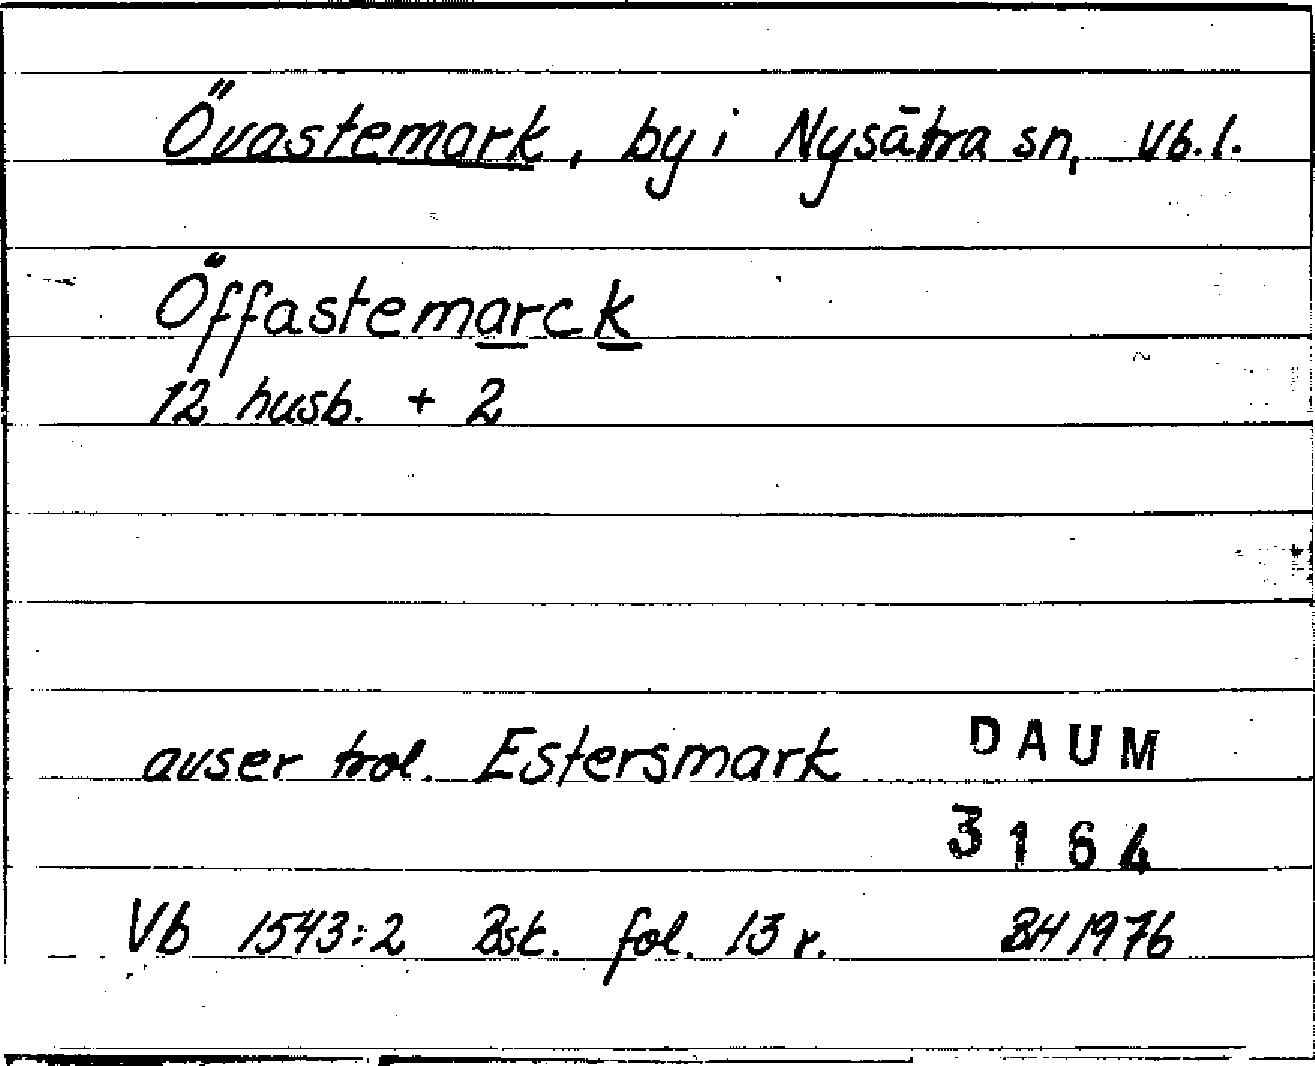 Övastemark, by i Nysätra sn, Vb.l.
Öffastemarck
12 husb. + 2
avser trol. Estersmark
DAUM
3164
Vb 1543:2 Bsk. fol. 13 r. BH 1976